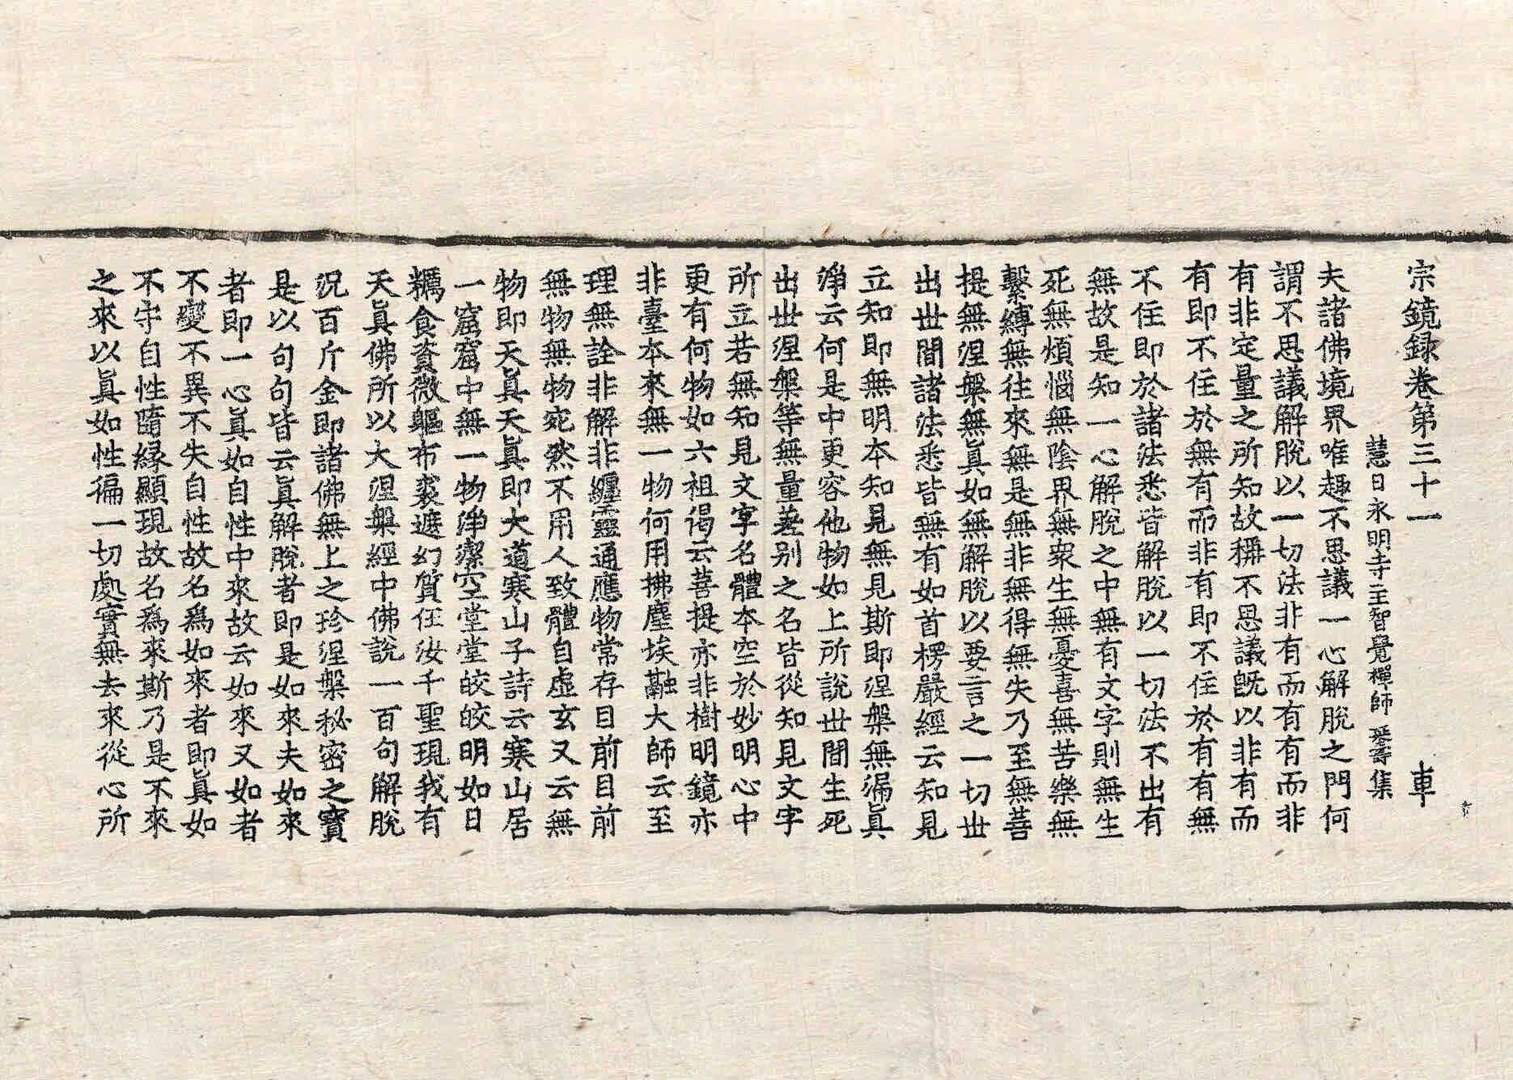 宗鏡録巻第三十一 車
慧日永明寺主智覺禪師延壽集
夫諸佛境界唯趣不思議一心解脫之門何
謂不思議解脫以一切法非有而有有而非
有非定量之所知故稱不思議旣以非有而
有即不住於無有而非有即不住於有有無
不住即於諸法悉皆解脫以一切法不出有
無故是知一心解脫之中無有文字則無生
死無煩惱無陰界無衆生無憂喜無苦樂無
繫縛無往來無是無非無得無失乃至無菩
提無涅槃無眞如無解脫以要言之一切世
出世間諸法悉皆無有如首楞嚴經云知見
立知即無明本知見無見斯即涅槃無漏眞
淨云何是中更容他物如上所說世間生死
出世涅槃等無量差别之名皆從知見文字
所立若無知見文字名體本空於妙明心中
更有何物如六祖偈云菩提亦非樹明鏡亦
非臺本來無一物何用拂塵埃融大師云至
理無詮非解非纏靈通應物常存目前目前
無物無物宛然不用人致體自虛玄又云無
物即天眞天眞即大道寒山子詩云寒山居
一窟窟中無一物淨潔空堂堂皎皎明如日
糲食資微軀布裘遮幻質任汝千聖現我有
天眞佛所以大涅槃經中佛說一百句解脫
況百斤金即諸佛無上之珍涅槃秘密之寶
是以句句皆云眞解脫者即是如來夫如來
者即一心眞如自性中來故云如來又如者
不變不異不失自性故名爲如來者即眞如
不守自性隨緣顯現故名爲來斯乃是不來
之來以眞如性徧一切處實無去來從心所